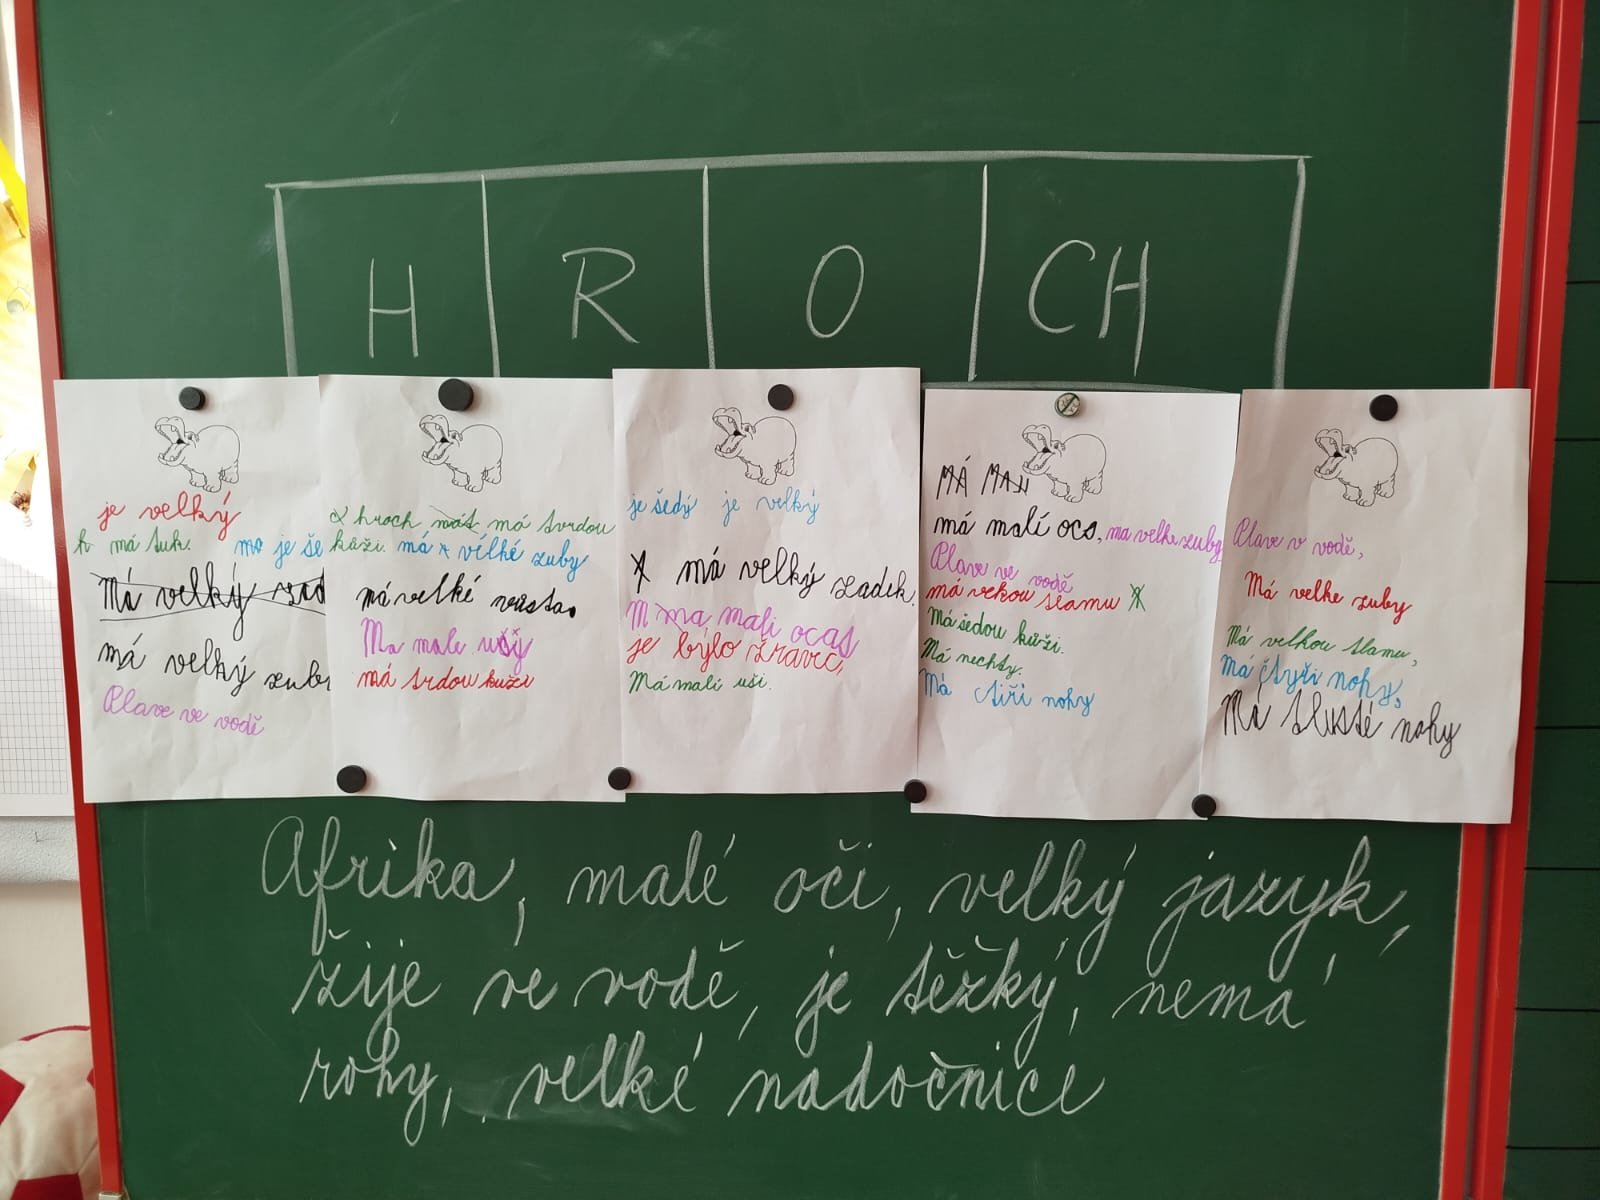 H R O CH
je velký
h má tuk. ma je še
Má velký zad
má velký zuby
Plave ve vodě
hroch mát má tvrdou
kůži. má vélké zuby
má velké ústa.
Ma male ušy
má trdou kuži
je šedý je velký
má velký zadek.
M ma mali ocas
je býlo žravec,
Má malí uši.
MÁ MALI
má malí ocs, ma velke zuby
Plave ve vodě
má vekou tlamu
Má šedou kůži.
Má nechty.
Má čtiři nohy
Plave v vodě,
Má velke zuby
Má velkou tlamu,
Má čtyři nohy,
Má tlusté nohy
Afrika, malé oči, velký jazyk,
žije ve vodě, je těžký, nemá
rohy, velké nadočnice